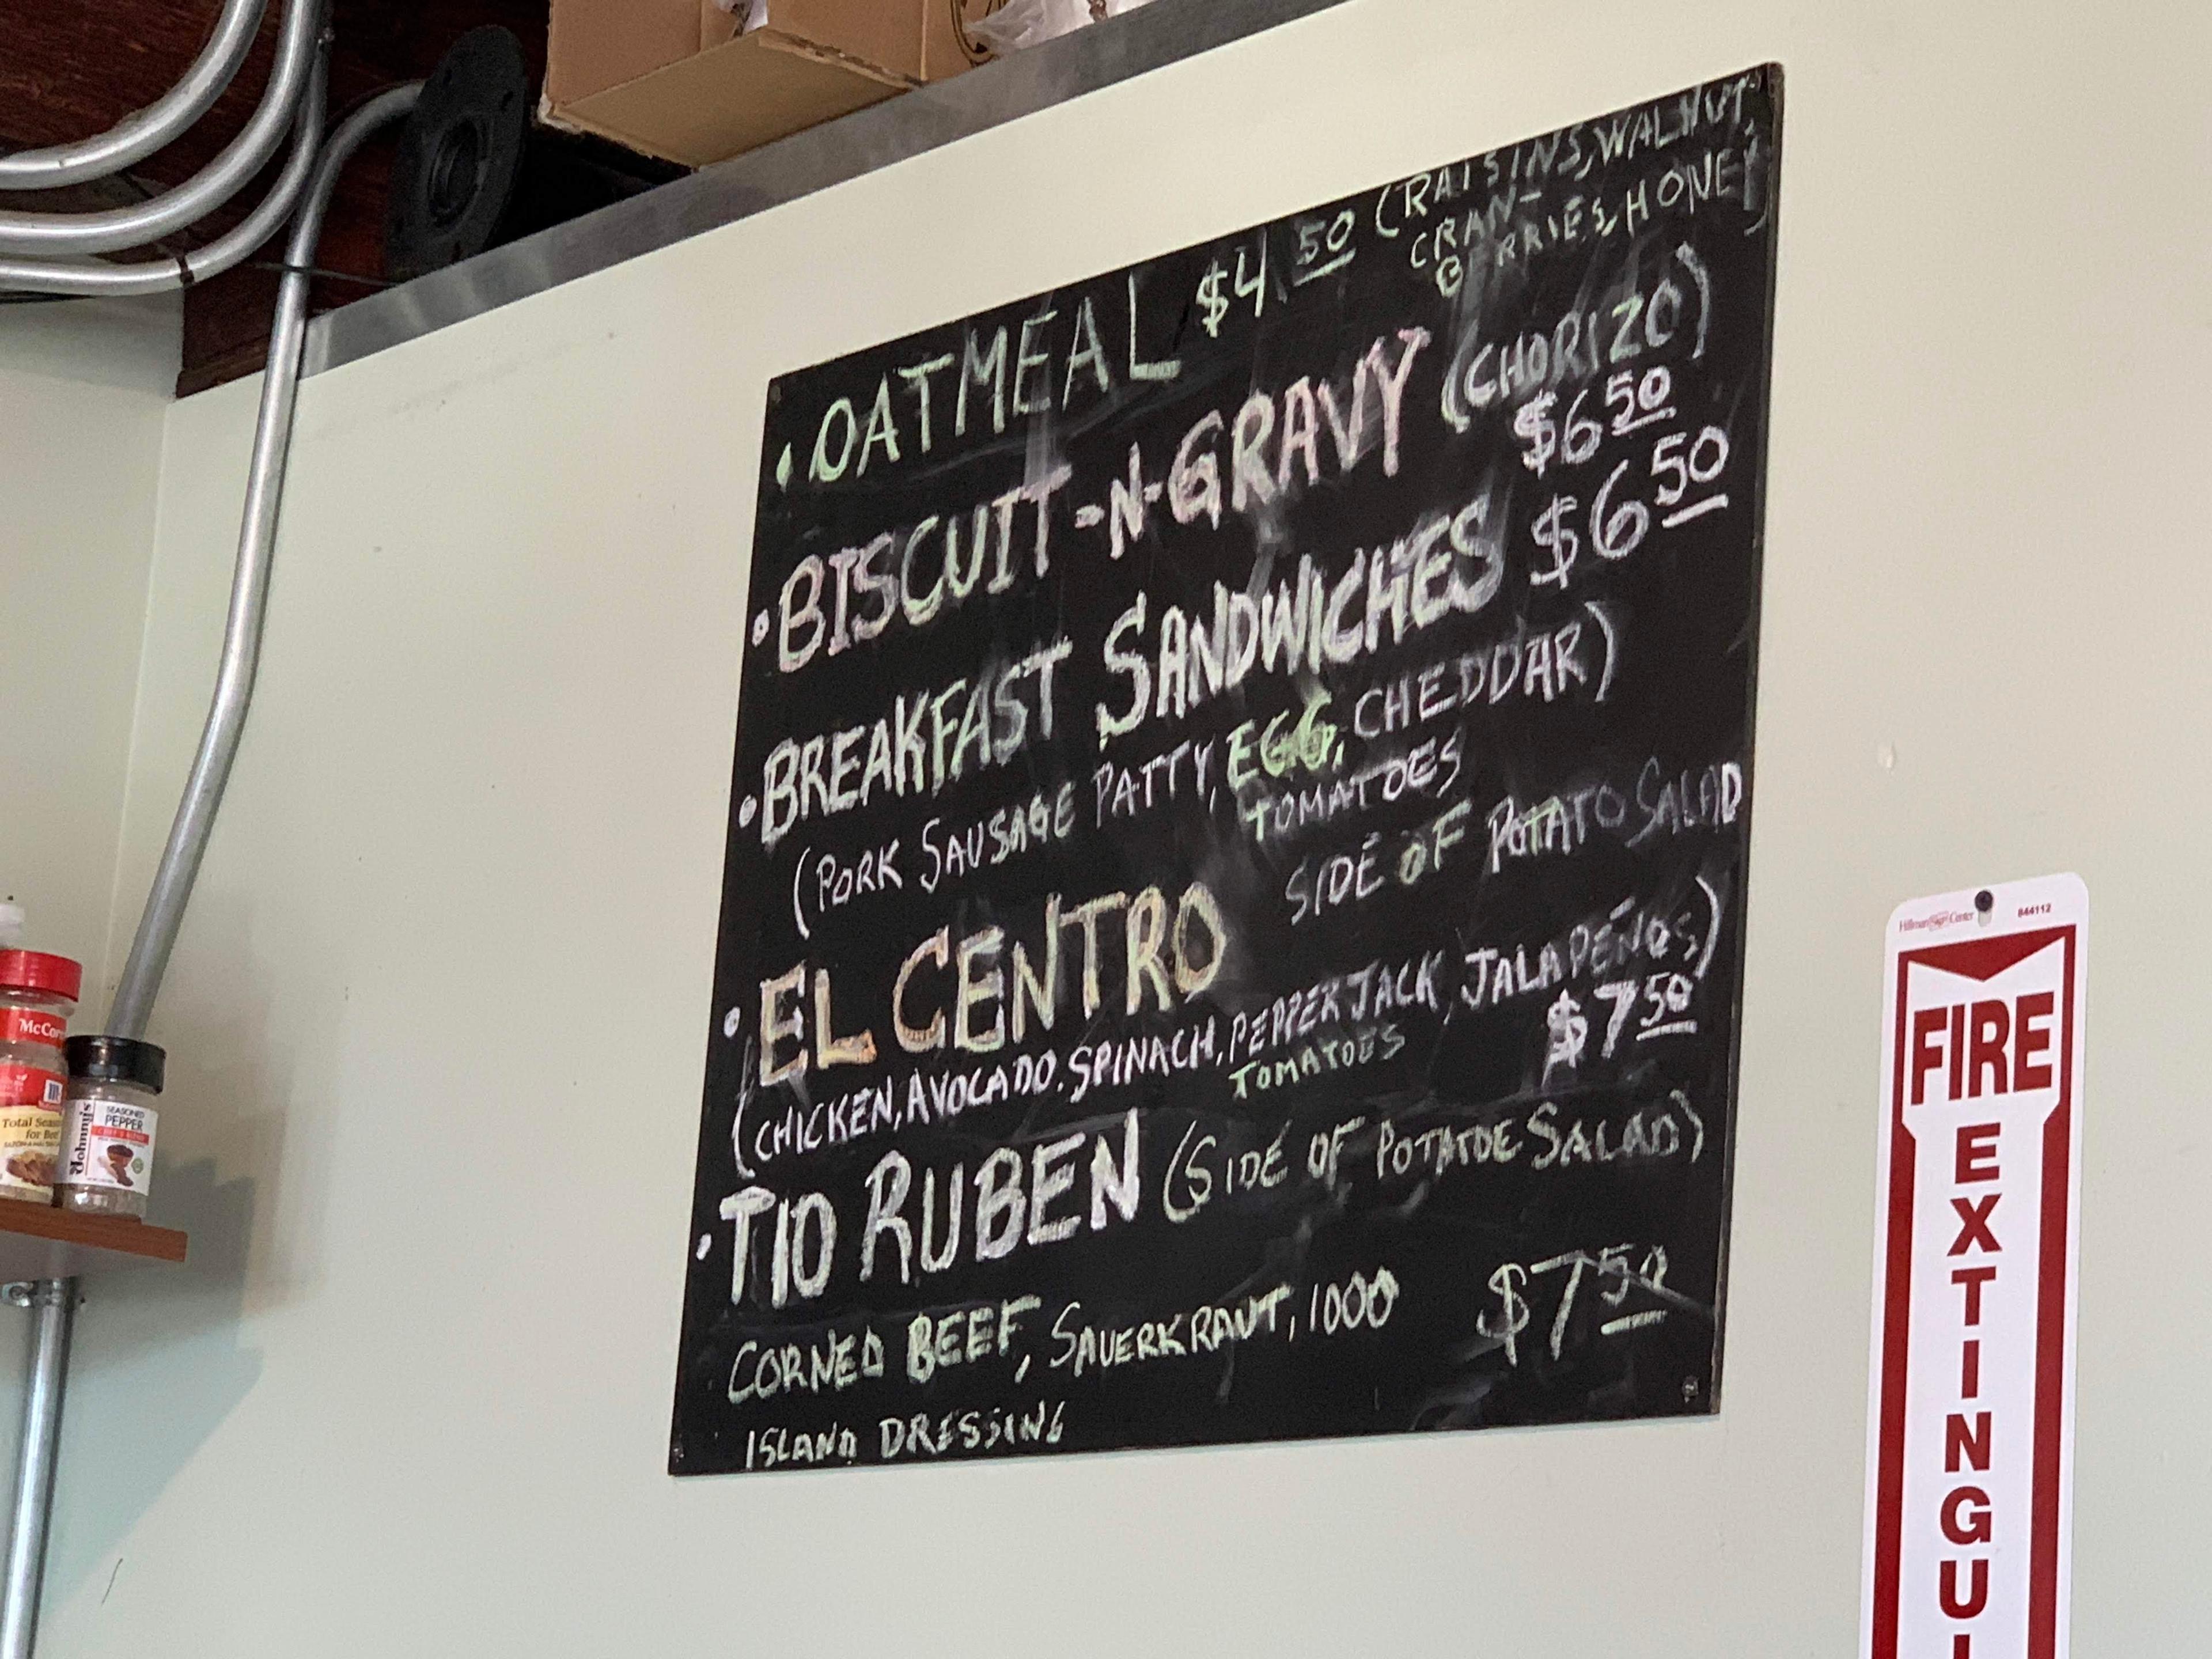 • OATMEAL $4.50 (RAISINS, WALNUT,
CRAN-
BERRIES, HONEY)
• BISCUIT-N-GRAVY (CHORIZO)
$6 50
• BREAKFAST SANDWICHES $6 50
(PORK SAUSAGE PATTY, EGG, CHEDDAR)
TOMATOES
• EL CENTRO SIDE OF POTATO SALAD
(CHICKEN, AVOCADO. SPINACH, PEPPER JACK, JALAPEÑOS)
TOMATOES
$7 50
• TIO RUBEN (SIDE OF POTATOE SALAD)
CORNED BEEF, SAUERKRAUT, 1000 $7 50
ISLAND DRESSING
McCor
Total Seas
for Beef
Johnny's
SEASONED
PEPPER
Hillman Sign Center 844112
FIRE
E
X
T
I
N
G
U
I